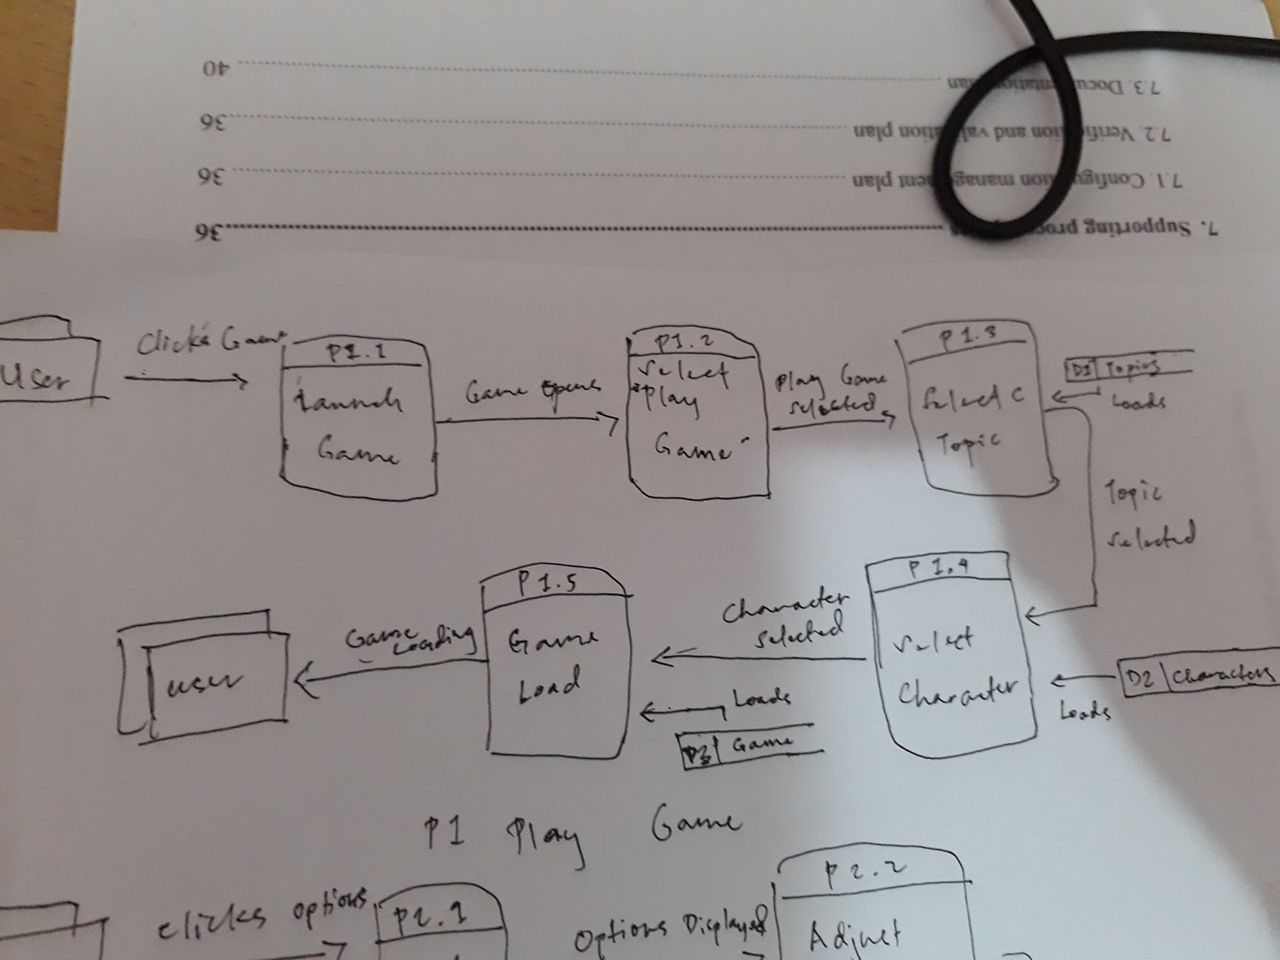 7.3. Documentation plan 40
7.2. Verification and validation plan 36
7.1. Configuration management plan 36
7. Supporting process 36
User
Clicks Game
P1.1
Launch
Game
Game opens
P1.2
Select
Play
Game
Play Game
selected
P1.3
Select
Topic
D1 Topics
Loads
Topic
selected
P1.4
Select
Character
D2 Characters
Loads
Character
selected
P1.5
Game
Load
Loads
D3 Game
Game
Loading
user
P1 Play Game
clicks options
P2.1
Options Displayed
P2.2
Adjust